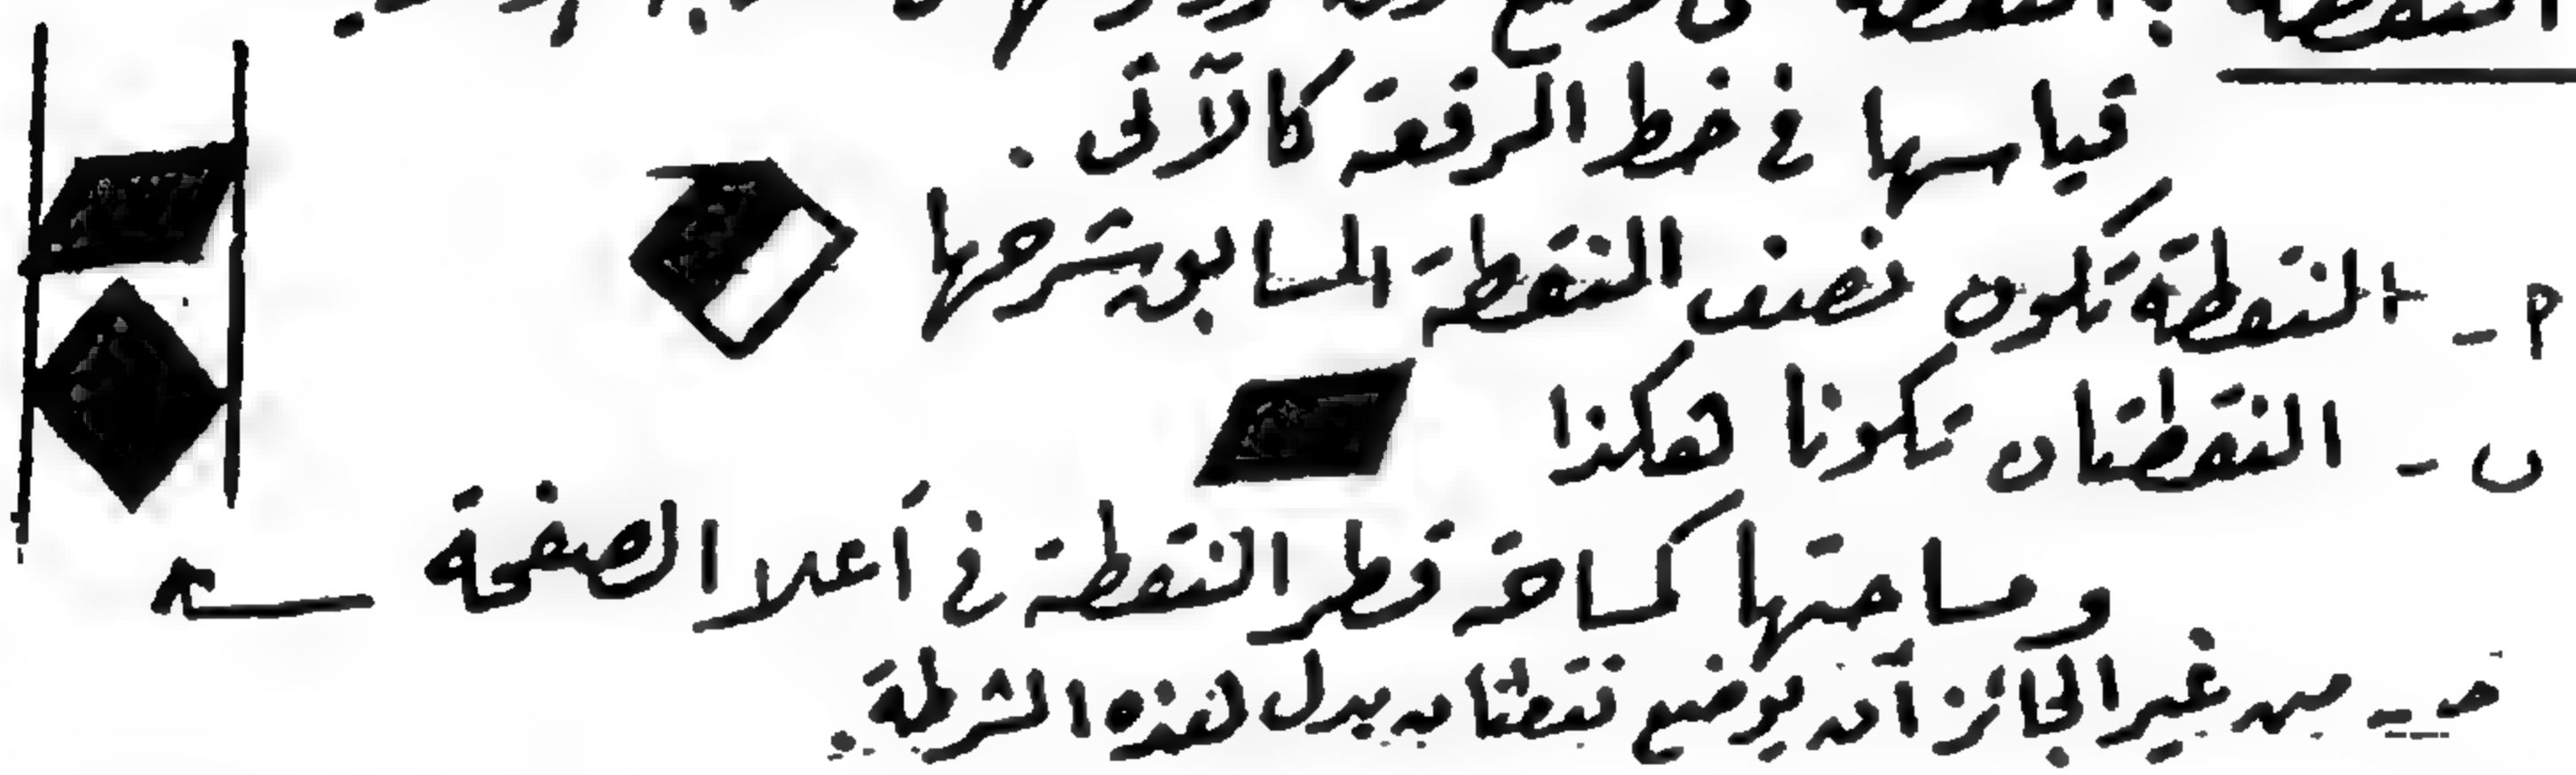 النقطة : النقطة
قياسها في خط الرقعة كالآتى .
أ - النقطة تكون نصف النقطة السابق شرحها
ب - النقطتان تكونا هكذا
ومساحتها كمساحة قطر النقطة في أعلا الصفحة
حـ - من غير الجائز أن يوضع نقطتان بدل هذه الشرطة .